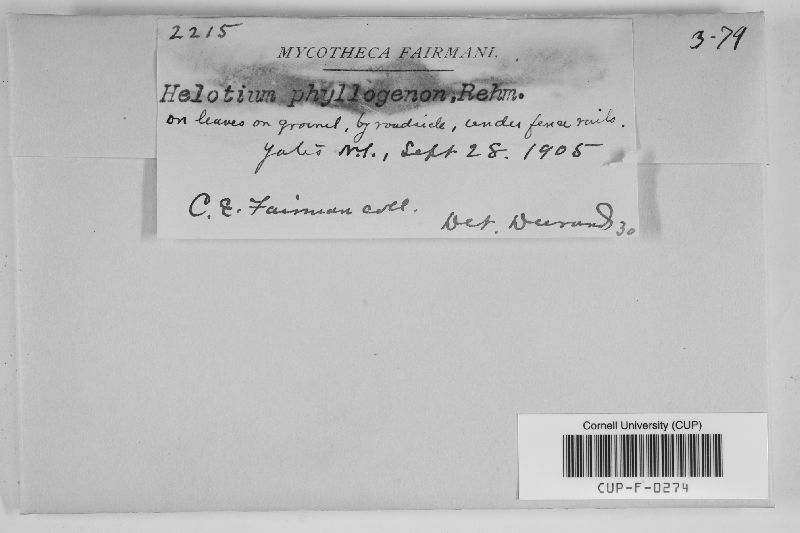 2215
3-79
MYCOTHECA FAIRMANI.
Helotium phyllogenon,Rehm.
on leaves on ground, by roadside, under fence rails.
Yates N.Y., Sept 28. 1905
C. E. Fairman coll.
Det. Durand
30
Cornell University (CUP)
CUP-F-0274